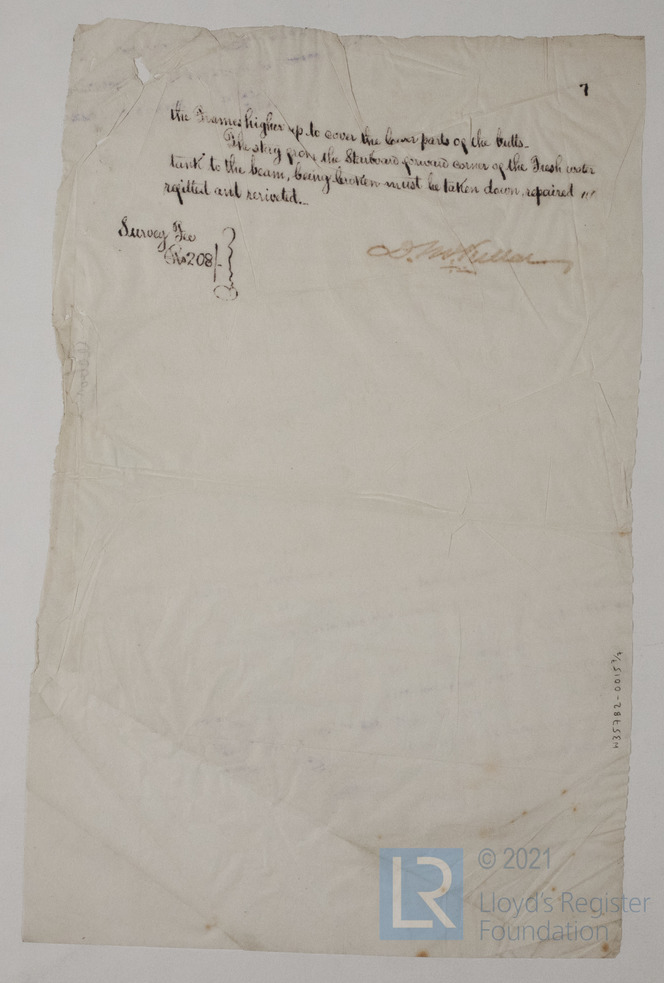 7
the Frames higher up to cover the lower parts of the butts.
The stay from the Starboard forward corner of the Fresh water
tank to the beam, being broken must be taken down, repaired
refitted and reriveted._
Survey Fee
208/-
© 2021
LR
Lloyd's Register
Foundation